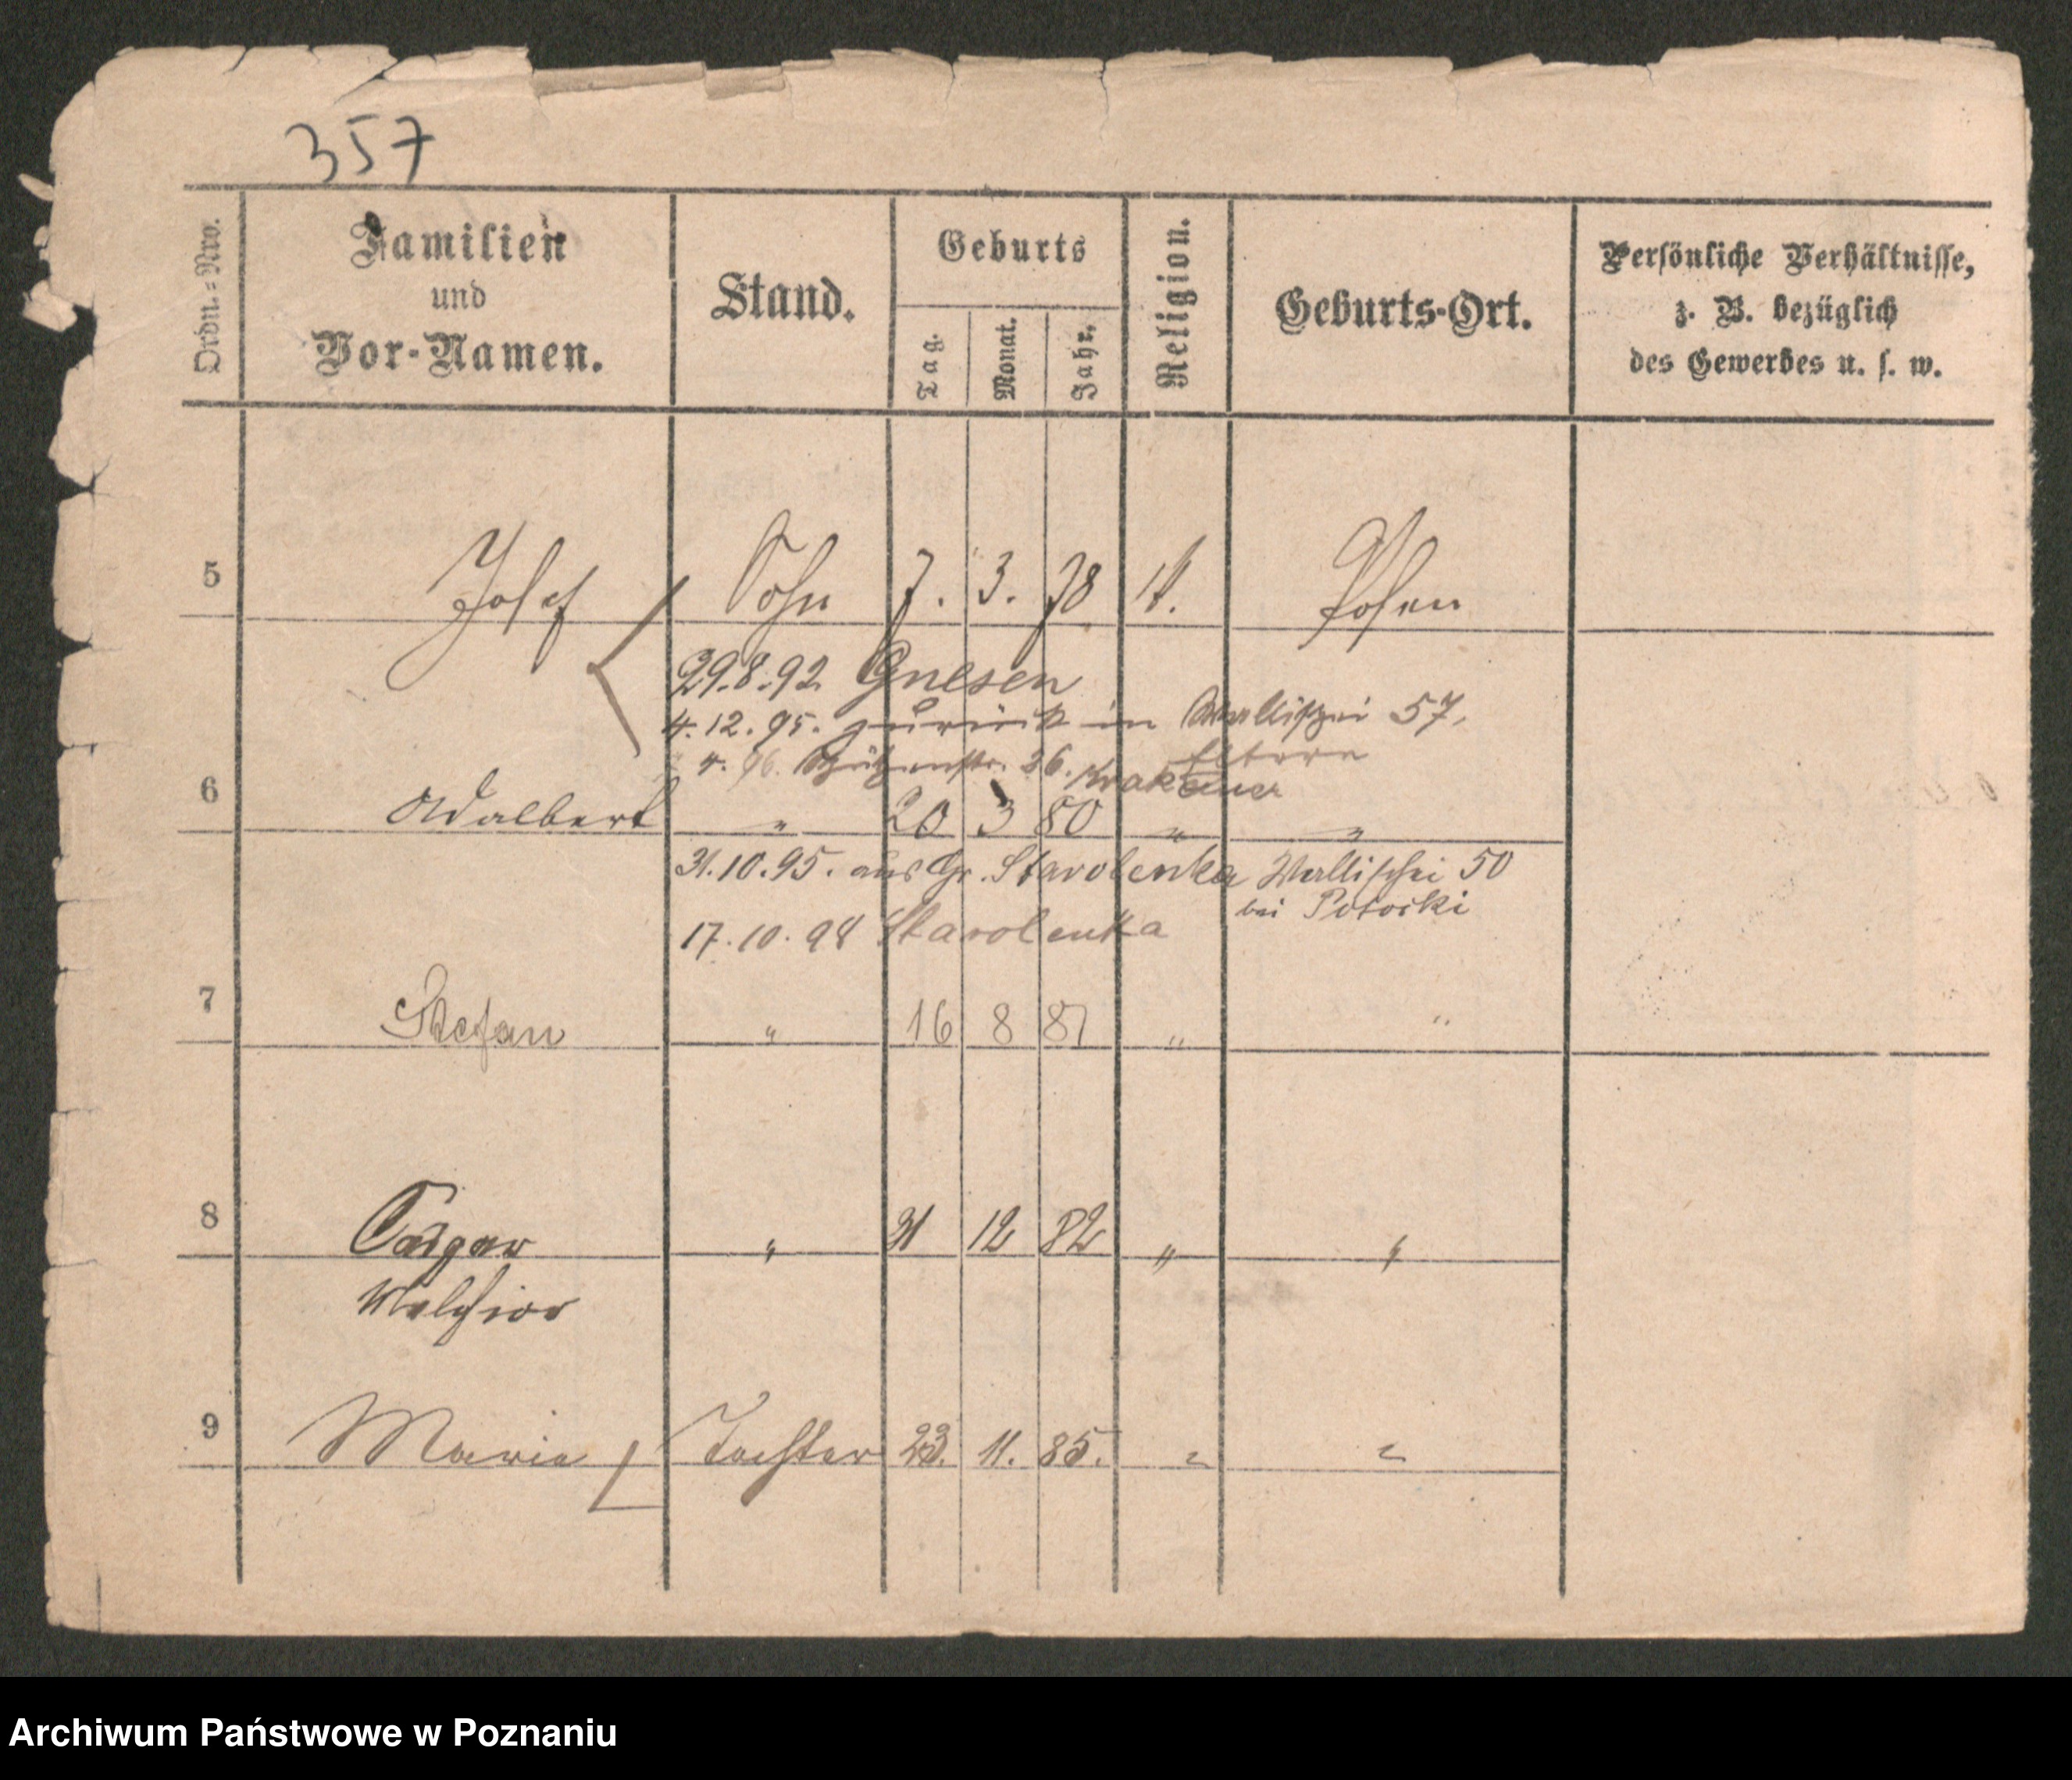 357
Ordn.-Nro.
Familien
und
Vor-Namen.
Stand.
Geburts
Tag.
Monat.
Jahr.
Religion.
Geburts-Ort.
Persönliche Verhältnisse,
z. B. bezüglich
des Gewerbes u. s. w.
5 Josef Sohn 7. 3. 78 k. Posen
29.8.92 Gnesen
4.12.95. zurück in Wallischei 57,
Eltern
4. 96. Schützenstr. 36. Krakauer
6 Adalbert " 20 3 80 " "
31.10.95. aus Gr. Starolenka Wallischei 50
bei Potocki
17.10.98 Starolenka
7 Stefan " 16 8 81 " "
8 Caspar " 31 12 82 " "
Melchior
9 Maria Tochter 23. 11. 85. " "
Archiwum Państwowe w Poznaniu